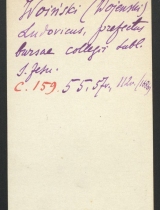 Woiński (Wojenski)
Ludovicus, prefectus
bursae collegii Lubl.
S. Jesu.
C. 159. 55. 57v, 112v.